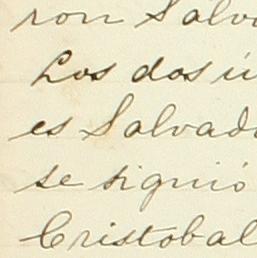 ron Salva
Los dos ú
es Salvado
se siguió
Cristobal